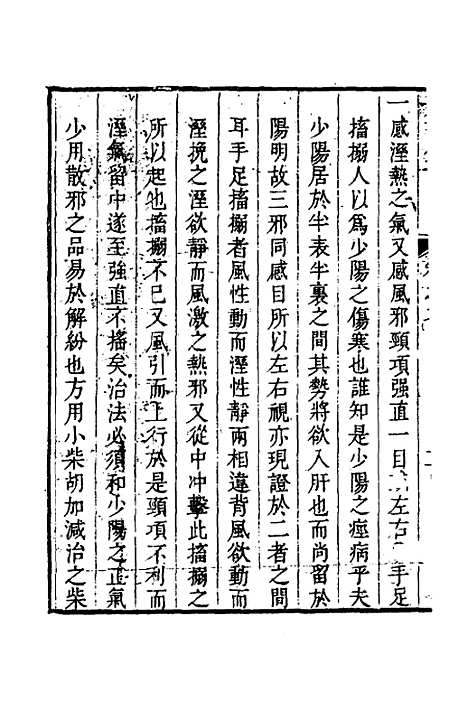 一感溼熱之氣又感風邪頸項强直一目左右手足
搐搦人以爲少陽之傷寒也誰知是少陽之痙病乎夫
少陽居於半表半裏之間其勢將欲入肝也而尚留於
陽明故三邪同感目所以左右視亦現證於二者之間
耳手足搐搦者風性動而溼性靜兩相違背風欲動而
溼挽之溼欲靜而風激之熱邪又從中冲擊此搐搦之
所以起也搐搦不已又風引而上行於是頸項不利而
溼氣留中遂至強直不搖矣治法必須和少陽之正氣
少用散邪之品易於解紛也方用小柴胡加減治之柴